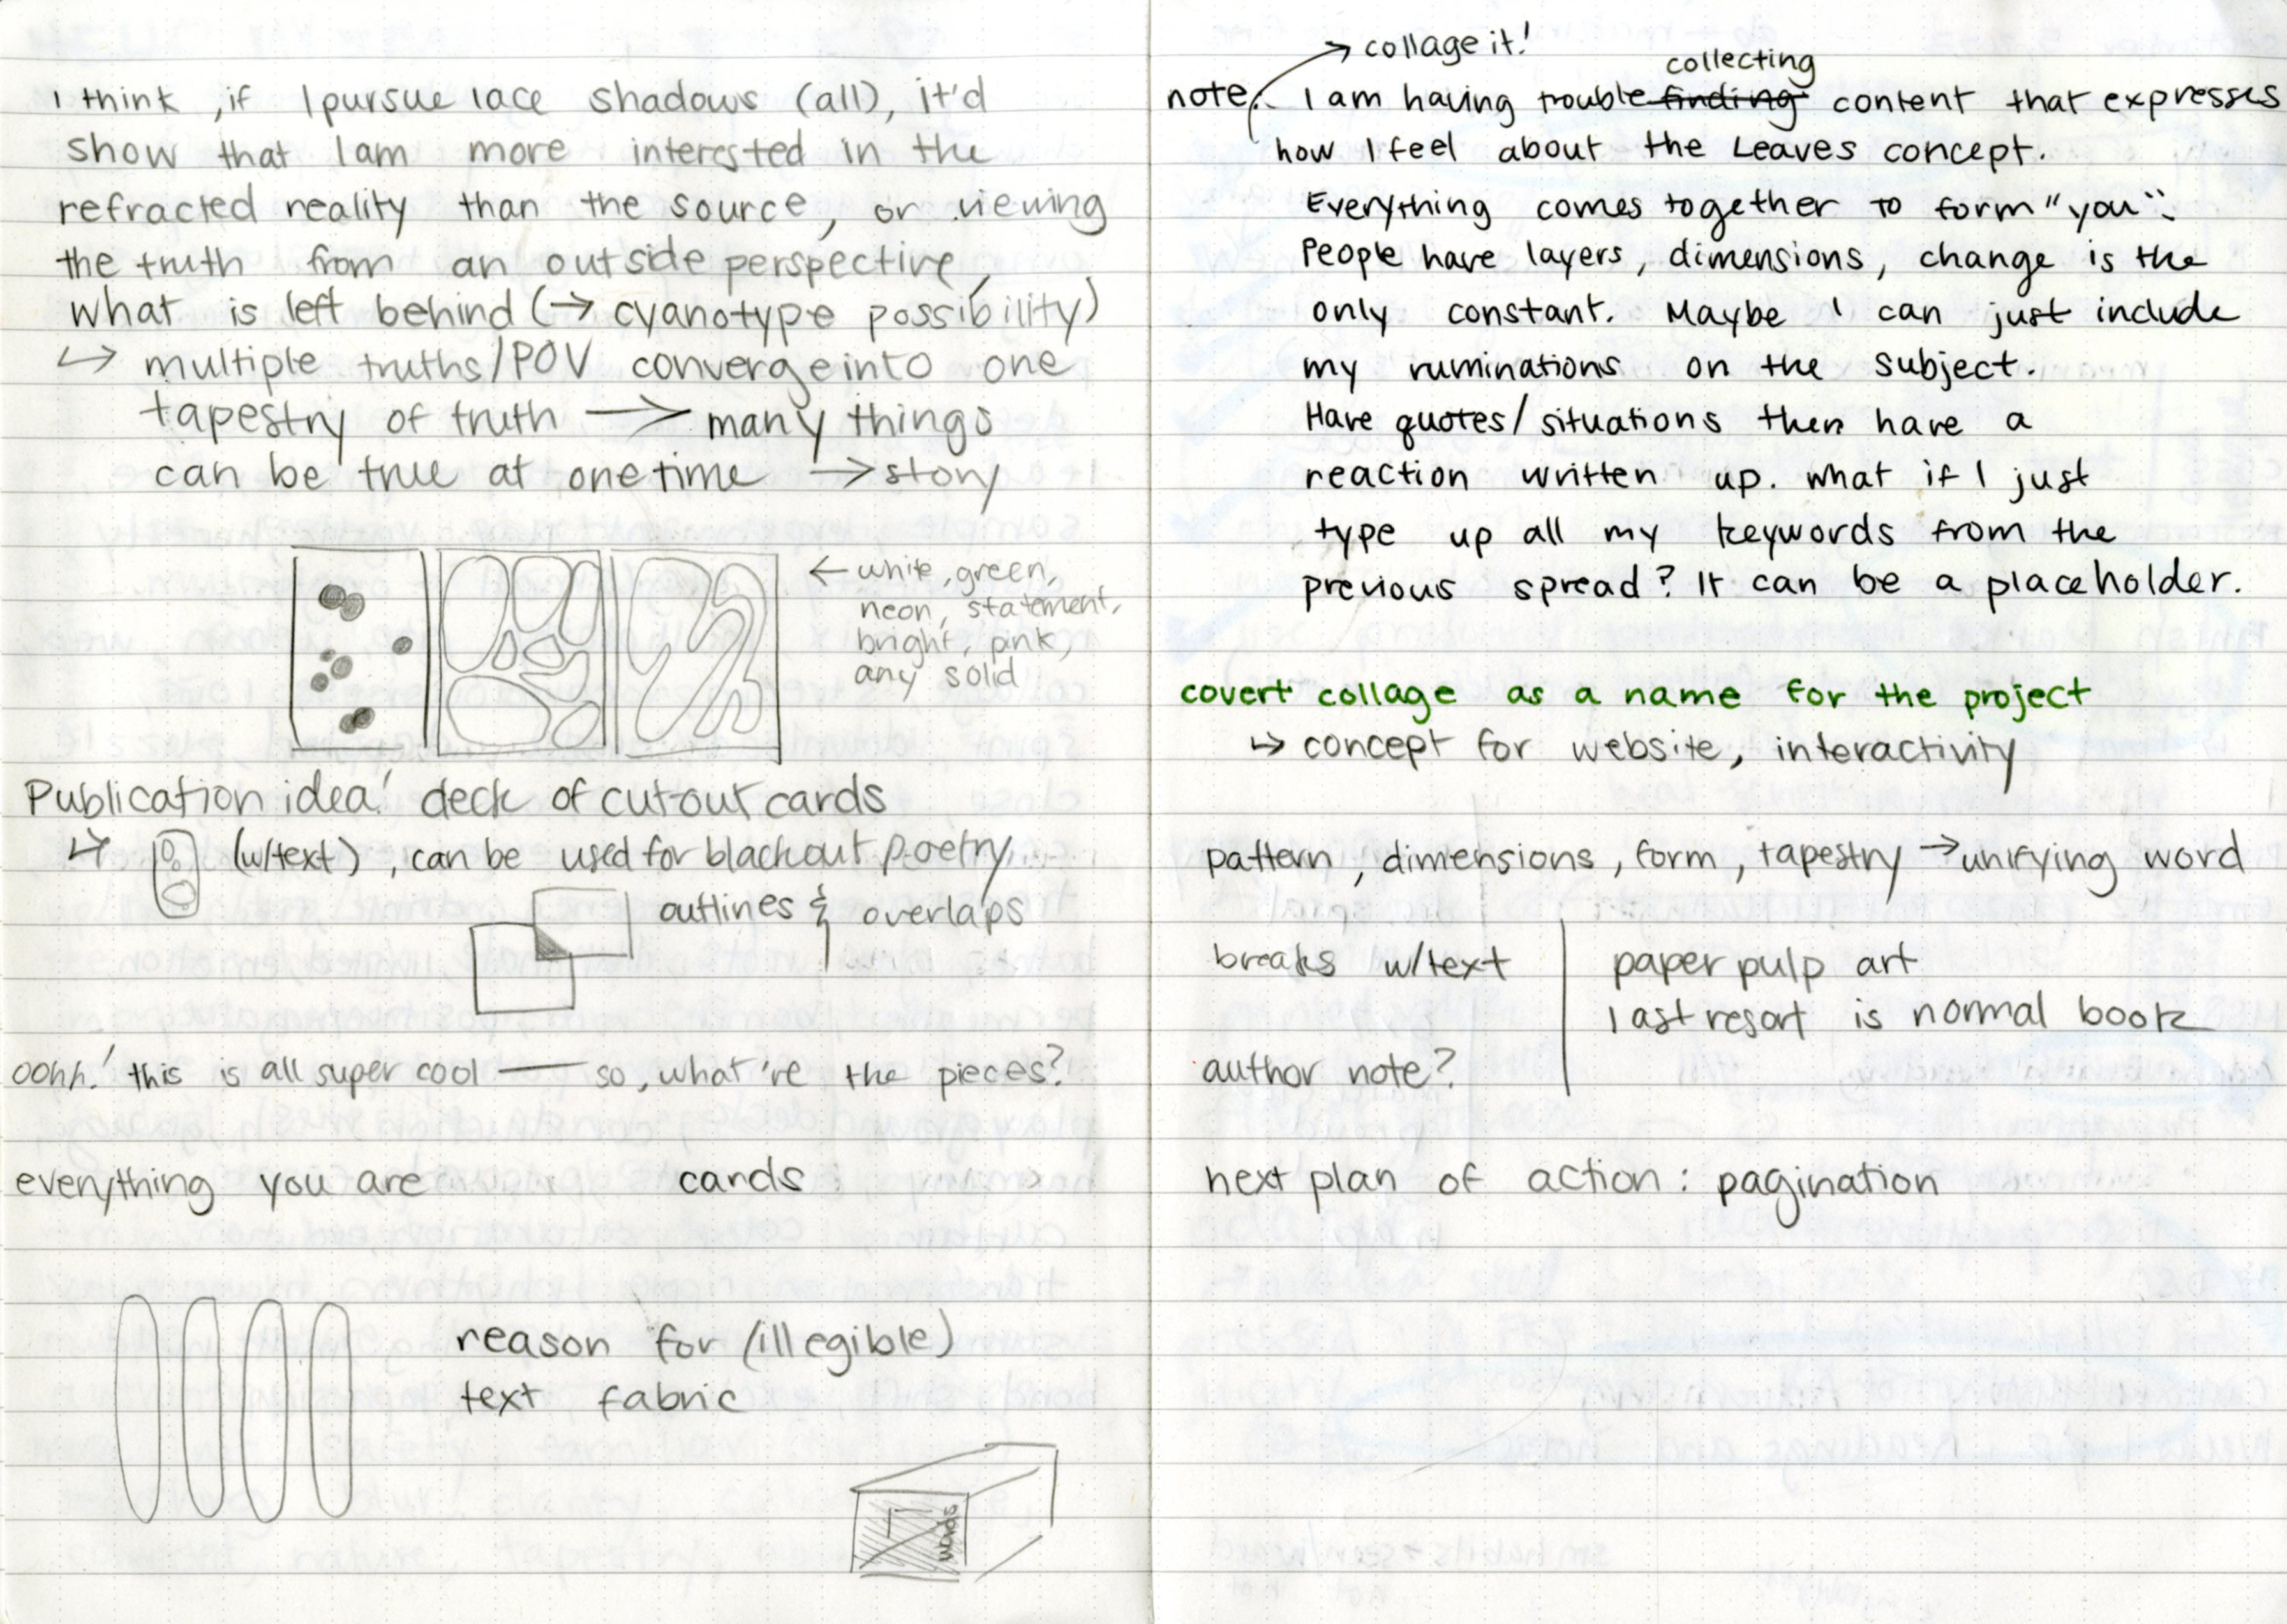 I think, if I pursue lace shadows (all), it'd
show that I am more interested in the
refracted reality than the source, or viewing
the truth from an outside perspective,
what is left behind (→ cyanotype possibility)
↳ multiple truths/POV converge into one
tapestry of truth → many things
can be true at one time → story
← white, green,
neon, statement,
bright, pink,
any solid
Publication idea! deck of cutout cards
↳ (w/text), can be used for blackout poetry
outlines & overlaps
oohh! this is all super cool — so, what're the pieces?
everything you are cards
reason for (illegible)
text fabric
words
→ collage it!
collecting
note: I am having trouble ~~finding~~ content that expresses
how I feel about the Leaves concept.
Everything comes together to form "you".
People have layers, dimensions, change is the
only constant. Maybe I can just include
my ruminations on the subject.
Have quotes/situations then have a
reaction written up. what if I just
type up all my keywords from the
previous spread? It can be a placeholder.
covert collage as a name for the project
↳ concept for website, interactivity
pattern, dimensions, form, tapestry → unifying word
breaks w/text
author note?
paper pulp art
last resort is normal book
next plan of action: pagination